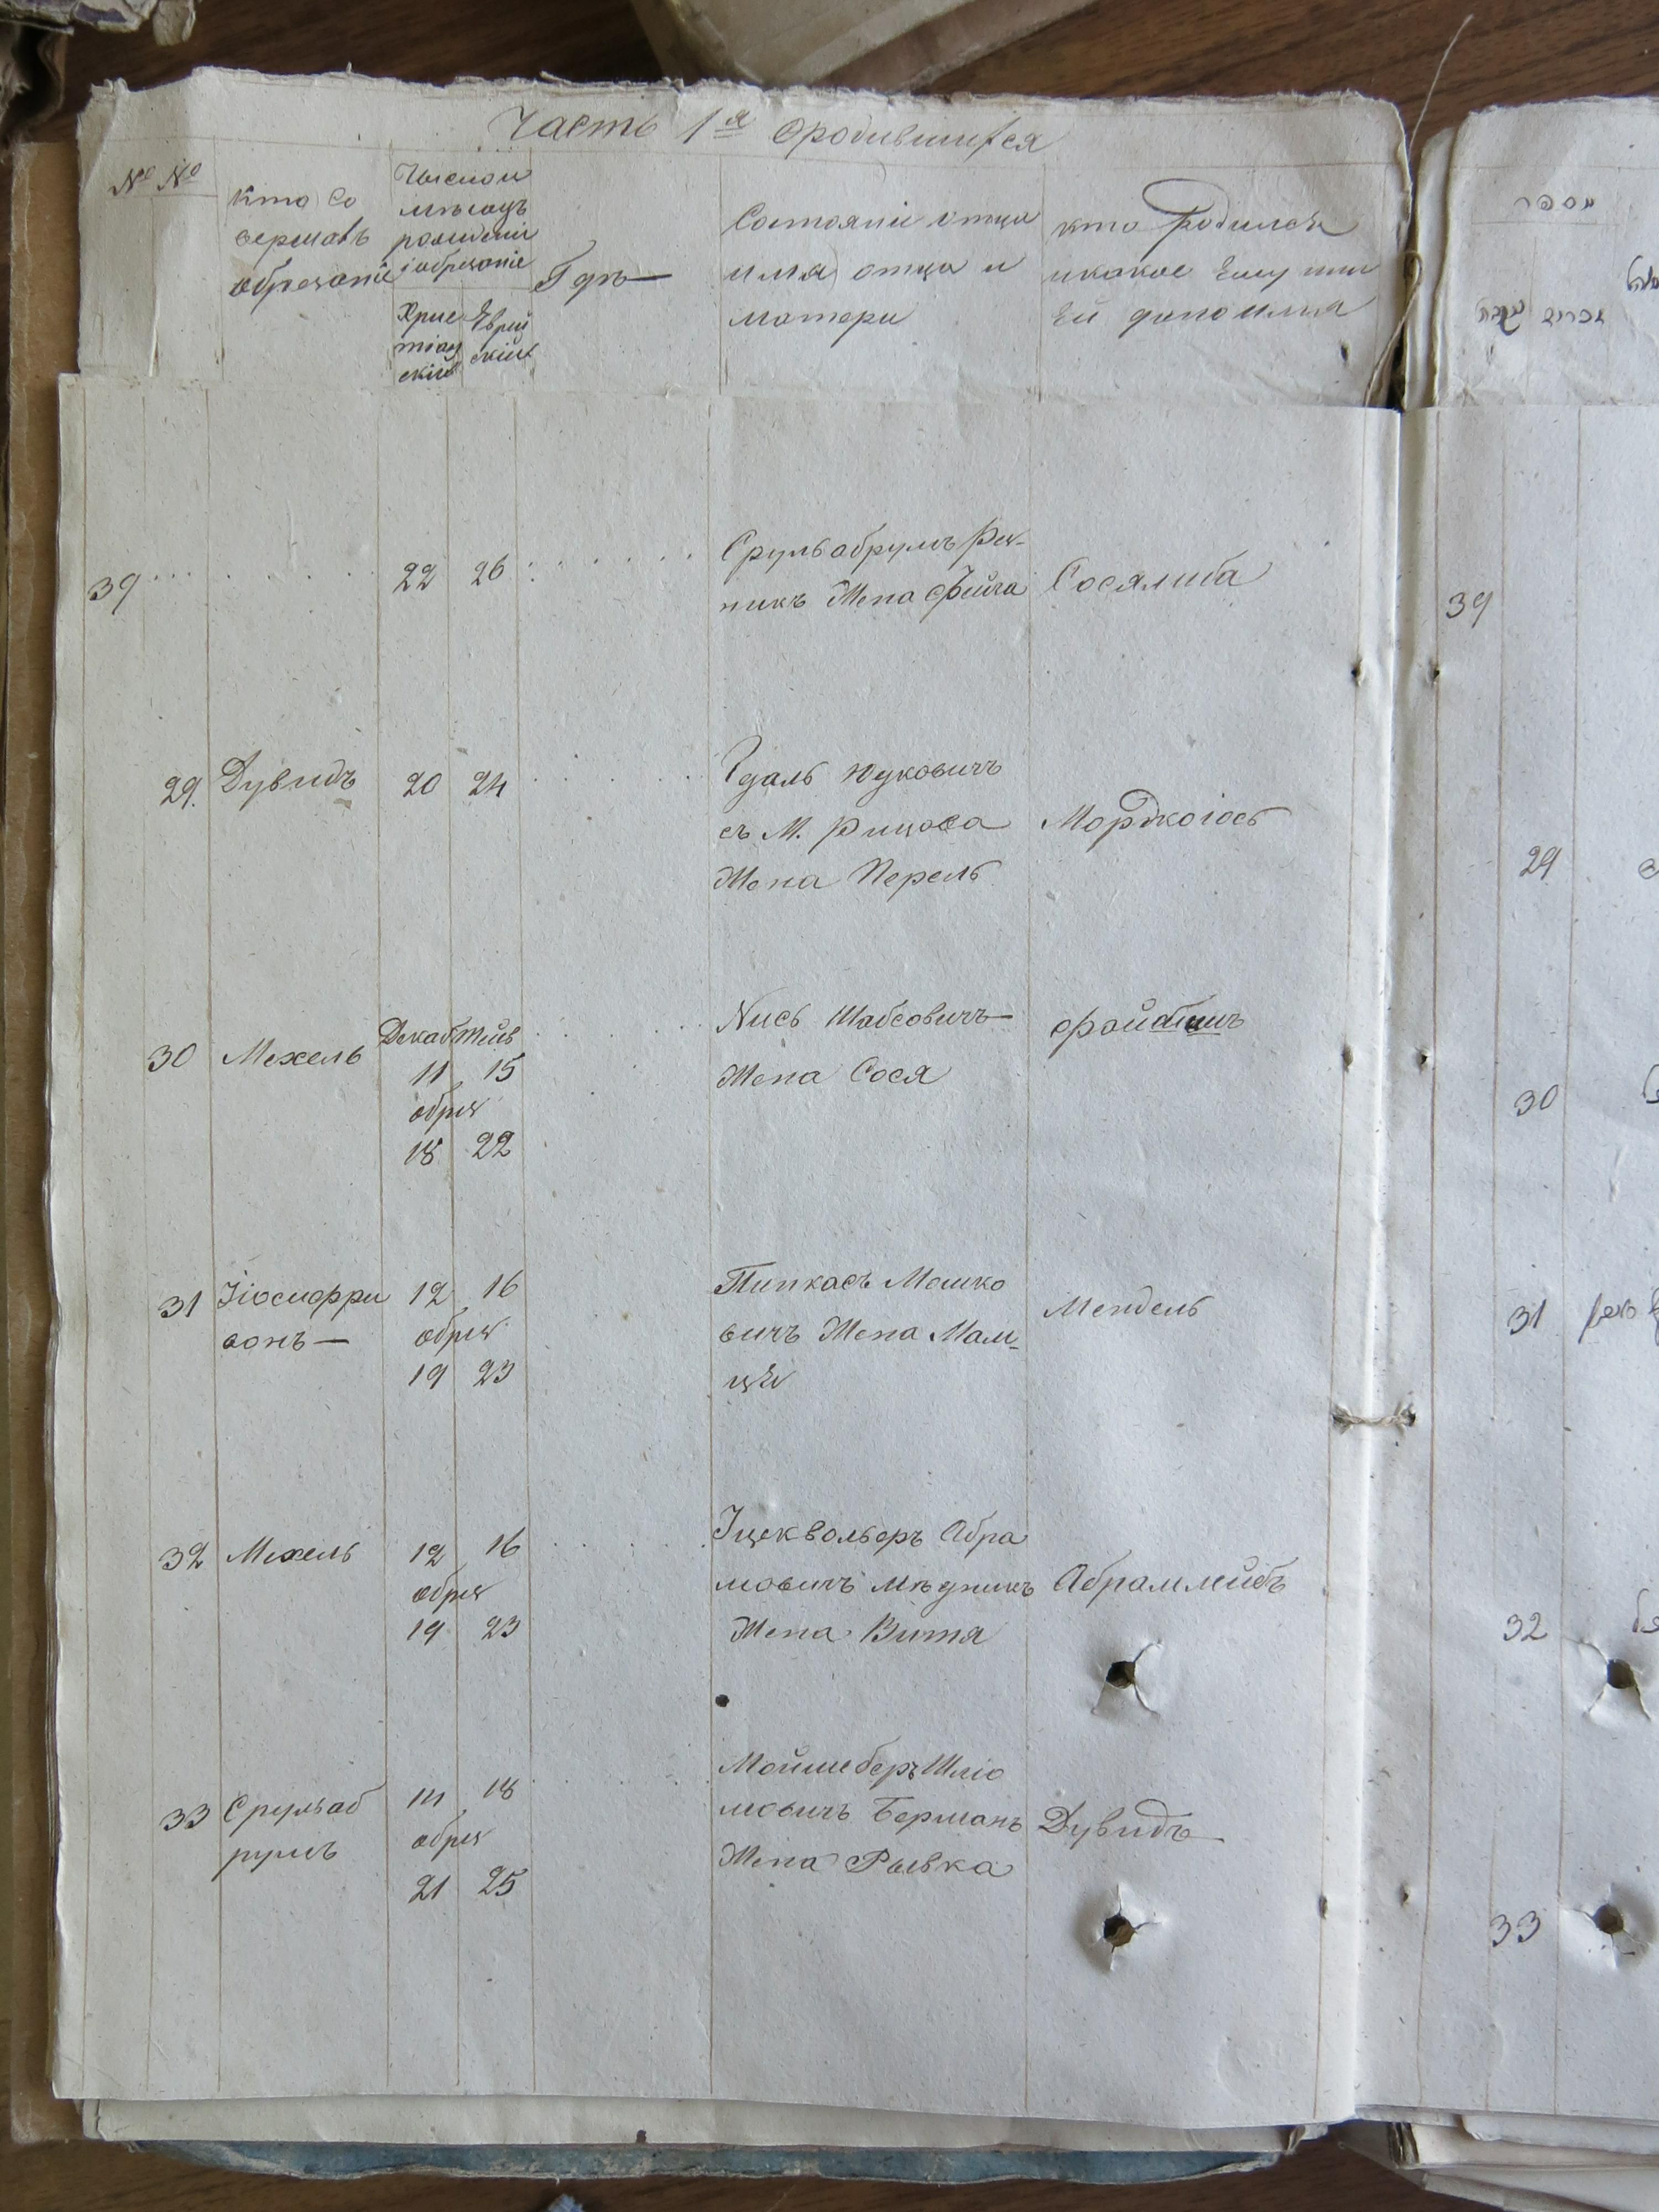 Часть 1я ородившихся
№ №
Кто Со
вершалъ
обрезаніе
Число и
мѣсецъ
рождении
іобрезаніе
Хрис
тіан
скій
Еврей
скій
Гдѣ—
Состояніе отца
имя отца и
матери
кто родился
икакое Ему или
Ей дано имя
39
22 26
Срульабрумъ Рез-
никъ Жена Фейга
Сосялиба
39
29. Дувидъ
20 24
Гдаль Юдковичъ
съ М.
Жена Перель
Мордкоіос
29
30 Мехель
Декаб Тейв
11 15
обрез
18 22
Нись Шабсовичъ—
Жена Сося
30
31 Іосифрри
вонъ—
12 16
обрез
19 23
Пинкасъ Мошко
вичъ Жена Мам-
цы
Мендель
31
32 Мехель
12 16
обрез
19 23
Іцеквольфъ Абра
мовичъ Мѣдникъ
Жена Витя
Абрамлейбъ
32
33 Срульаб
румъ
14 18
обрез
21 25
Мойшеберъ Шлио
мовичъ Берманъ
Жена Рывка
Дувидъ
33